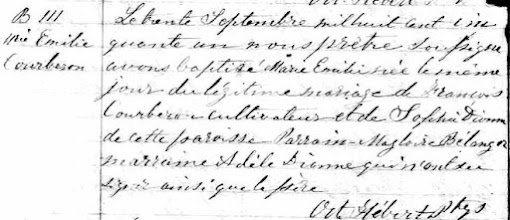 B 111
Mie Emilie
Courberon
Le trente Septembre mil huit cent cin
quante un nous prêtre soussigné
avons baptisé Marie Emilie née le même
jour du légitime mariage de François
Courberon cultivateur et de Sophie Dionne
de cette paroisse Parrain Magloire Bélanger
marraine Adèle Dionne qui n'ont su
signer ainsi que le père
Oct Hébert Ptre